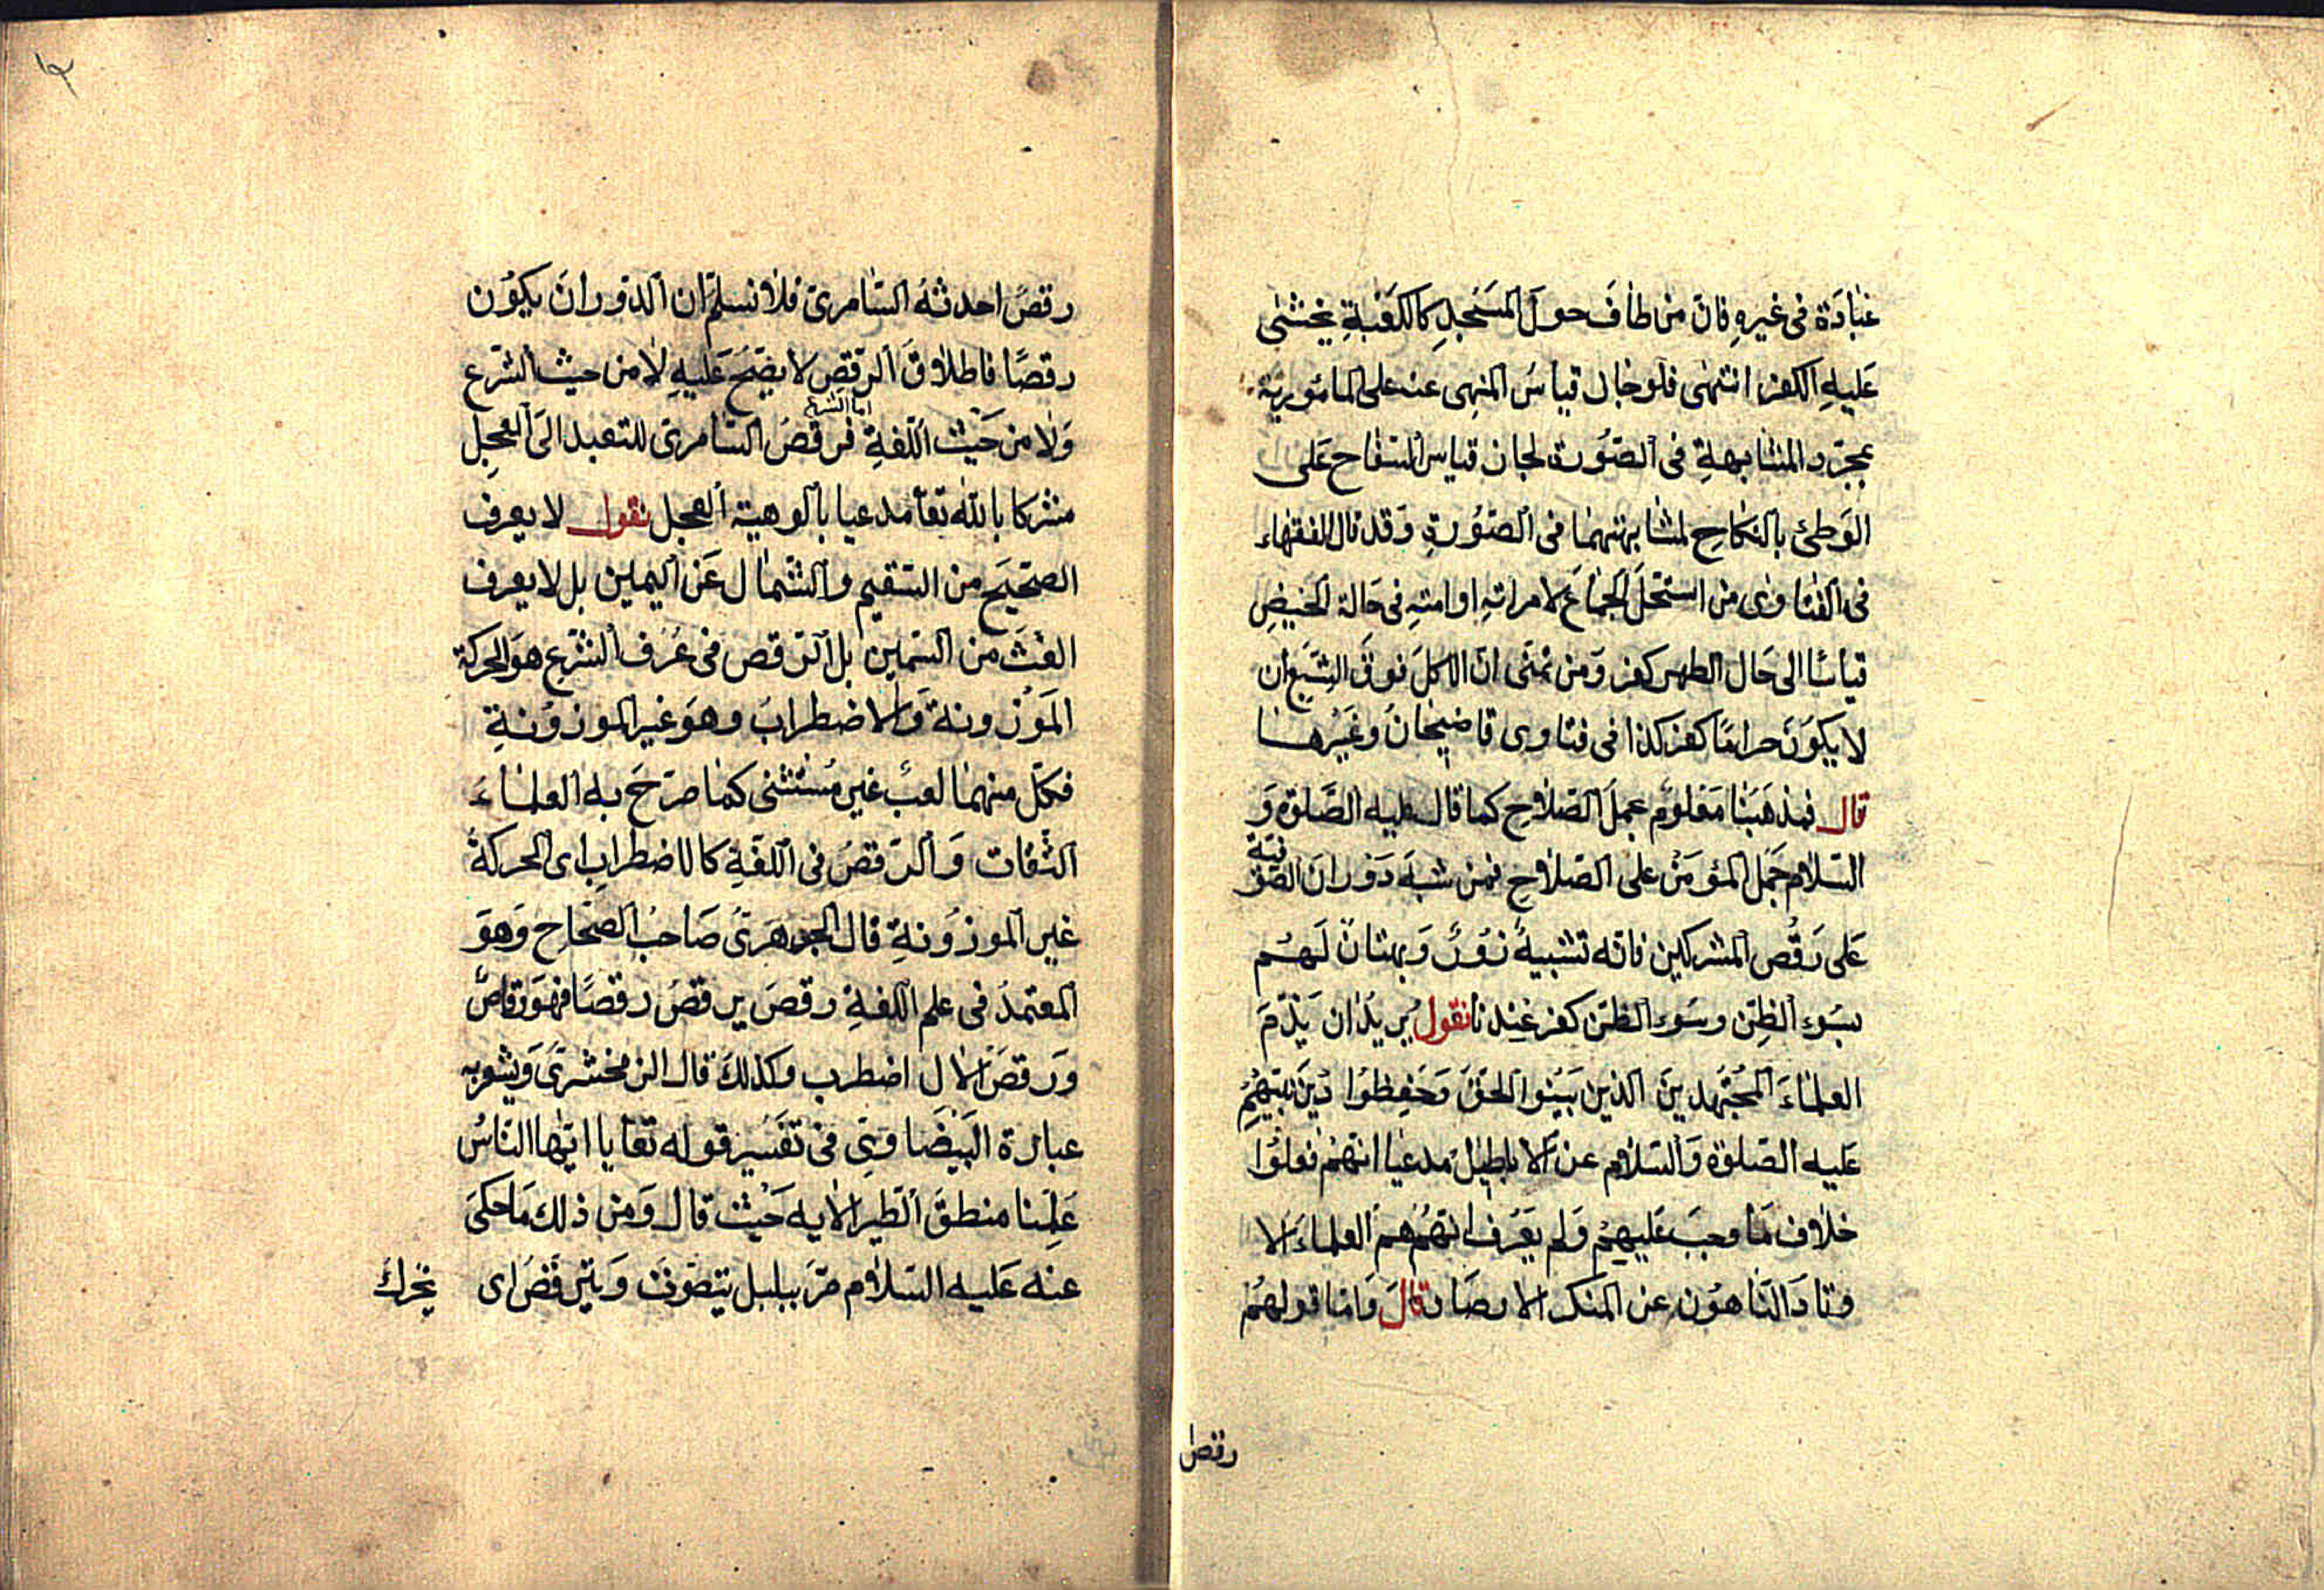 عبادة فى غيره فان من طاف حول المسجد كالكعبة يخشى
عليه الكفر انتهى فلو جاز قياس المنهى عنه على المأموربه
بمجرد المشابهة فى الصورة لجاز قياس السفاح على
الوطئ بالنكاح لمشابهتهما فى الصورة وقد قال الفقهاء
فى الفتاوى من استحل الجماع لامراته او امته فى حالة الحيض
قياسا الى حال الطهر كفر ومن تمنى ان الاكل فوق الشبع ان
لا يكون حراما كفر كذا فى فتاوى قاضيخان وغيرها
قال فمذهبنا معلوم عمل الصلاح كما قال عليه الصلوة و
السلام حمل المؤمن على الصلاح فمن شبه دوران الصوفية
على رقص المشركين فانه تشبيه زور وبهتان لهم
بسوء الظن وسوء الظن كفر عندنا نقول يريد ان يذم
العلماء المجتهدين الذين بينوا الحق وحفظوا دين نبيهم
عليه الصلوة والسلام عن الاباطيل مدعيا انهم فعلوا
خلاف ما وجب عليهم ولم يعرف انهم هم العلماء الا
وتاد الناهون عن المنكر الارصاد قال واما قولهم
رقص
١٢
رقص احدثه السامرى فلا نسلم ان الدوران يكون
رقصا فاطلاق الرقص لا يصح عليه لا من حيث الشرع
ولا من حيث اللغة اما الشرع فرقص السامرى للتعبد الى العجل
مشركا بالله تعا مدعيا بالوهية العجل نقول لا يعرف
الصحيح من السقيم والشمال عن اليمين بل لا يعرف
الغث من السمين بل الرقص فى عرف الشرع هو الحركة
الموزونة والاضطراب وهو غير الموزونة
فكل منهما لعب غير مستثنى كما صرح به العلماء
الثقات والرقص فى اللغة كالاضطراب اى الحركة
غير الموزونة قال الجوهرى صاحب الصحاح وهو
المعتمد فى علم اللغة رقص يرقص رقصا فهو رقاص
ورقص الال اضطرب وكذلك قال الزمخشرى ويشعر به
عبارة البيضاوى فى تفسير قوله تعا يا ايها الناس
علمنا منطق الطير الايه حيث قال ومن ذلك ما حكى
عنه عليه السلام مر ببلبل يتصوت ويترقص اى
يتحرك